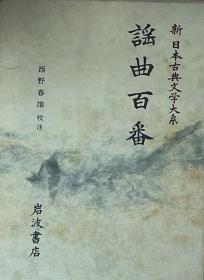 新日本古典文学大系
謡曲百番
西野春雄 校注
岩波書店